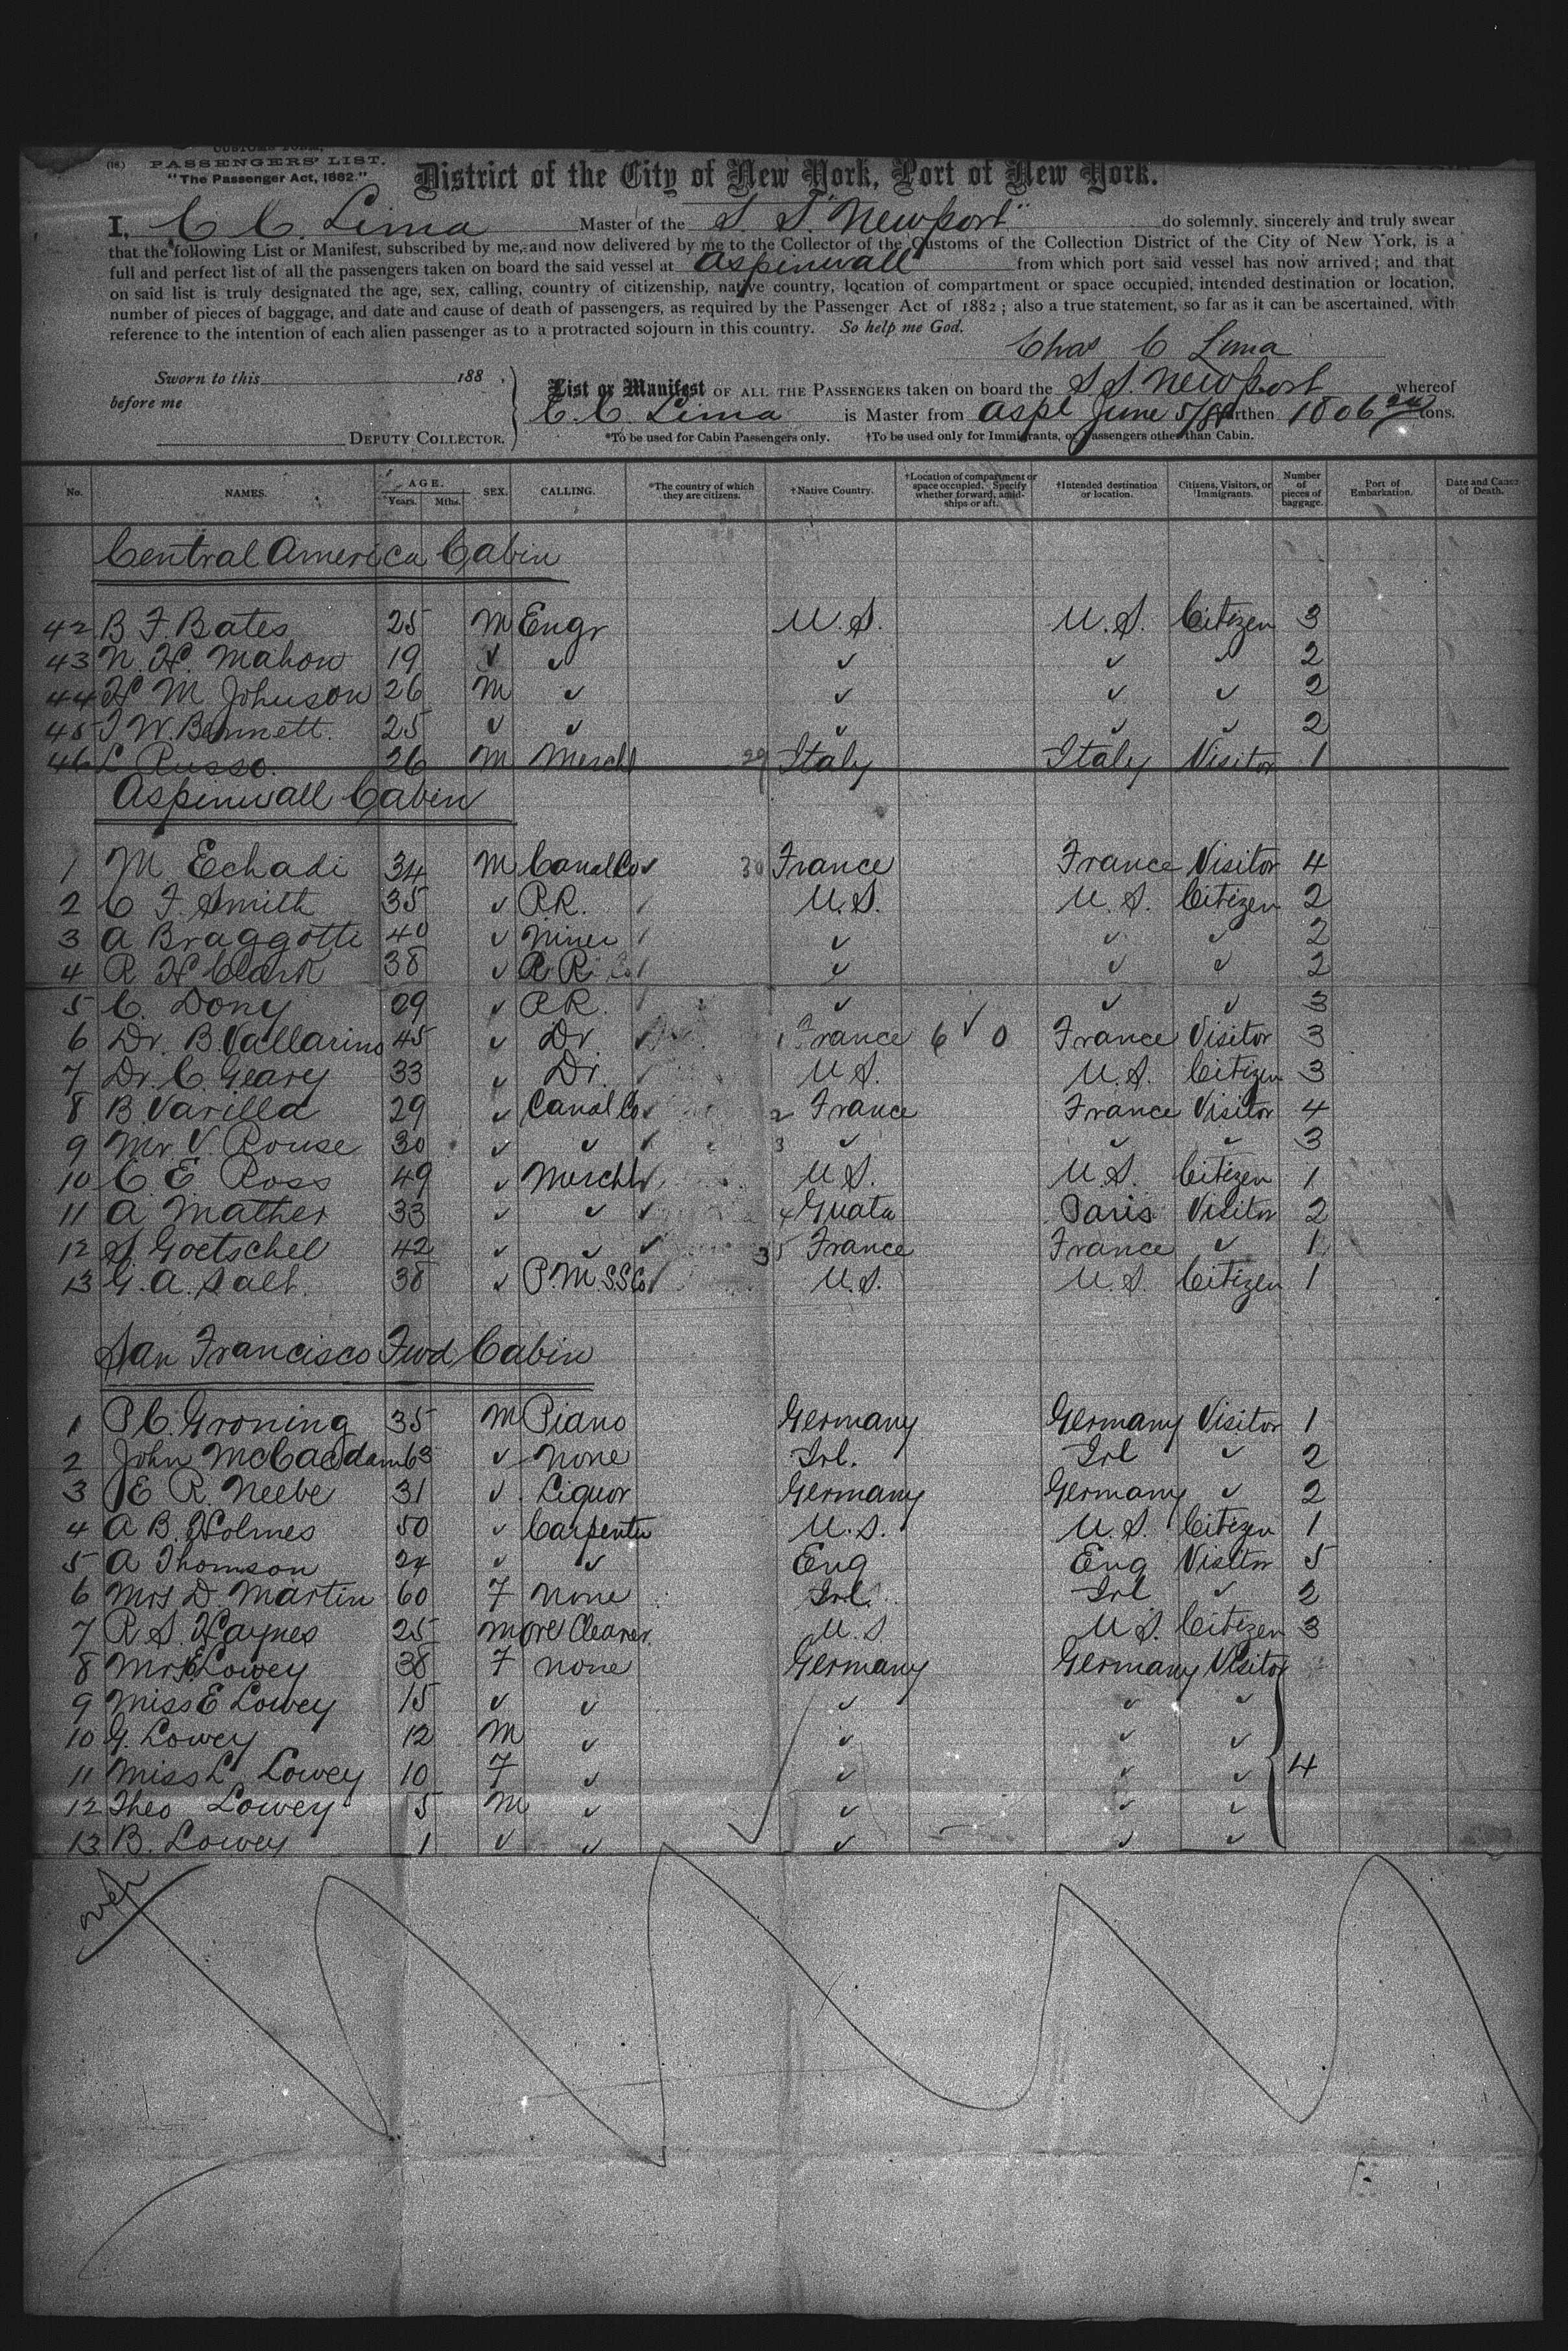 (18.)
PASSENGERS' LIST.
"The Passenger Act, 1882."
District of the City of New York, Port of New York.
I, C C. Lima Master of the S. S. "Newport" do solemnly, sincerely and truly swear
that the following List or Manifest, subscribed by me, and now delivered by me to the Collector of the Customs of the Collection District of the City of New York, is a
full and perfect list of all the passengers taken on board the said vessel at Aspinwall from which port said vessel has now arrived; and that
on said list is truly designated the age, sex, calling, country of citizenship, native country, location of compartment or space occupied, intended destination or location,
number of pieces of baggage, and date and cause of death of passengers, as required by the Passenger Act of 1882; also a true statement, so far as it can be ascertained, with
reference to the intention of each alien passenger as to a protracted sojourn in this country. So help me God.
Chas C Lima
Sworn to this 188 .
before me
DEPUTY COLLECTOR.
List or Manifest OF ALL THE PASSENGERS taken on board the S.S. Newport whereof
C. C. Lima is Master from Aspl June 5/88 burthen 1806 tons.
*To be used for Cabin Passengers only. †To be used only for Immigrants, or Passengers other than Cabin.
No. NAMES. AGE. Years. Mths. SEX. CALLING. *The country of which they are citizens. †Native Country. †Location of compartment or space occupied. Specify whether forward, amidships or aft. †Intended destination or location. Citizens, Visitors, or Immigrants. Number of pieces of baggage. Port of Embarkation. Date and Cause of Death.
Central America Cabin
42 B F. Bates 25 M Engr U.S. U.S. Citizen 3
43 N. H. Mahon 19 ✓ ✓ ✓ ✓ ✓ 2
44 H M Johnson 26 M ✓ ✓ ✓ ✓ 2
45 J W. Bennett. 25 ✓ ✓ ✓ ✓ ✓ 2
46 L Russo. 26 M Mercht 29 Italy Italy Visitor 1
Aspinwall Cabin
1 M Echadi 34 M Canal Co ✓ 30 France France Visitor 4
2 C F Smith 35 ✓ R.R. U.S. U.S. Citizen 2
3 A Braggotti 40 ✓ Miner ✓ ✓ ✓ 2
4 R H Clark 38 ✓ R.R. Co ✓ ✓ ✓ 2
5 C. Dony 29 ✓ R.R. ✓ ✓ ✓ 3
6 Dr. B. Vallarino 45 ✓ Dr. ✓ 1 France 6 ✓ 0 France Visitor 3
7 Dr. C. Geary 33 ✓ Dr. U.S. U.S. Citizen 3
8 B. Varilla 29 ✓ Canal Co ✓ 2 France France Visitor 4
9 Mr V. Rouse 30 ✓ ✓ ✓ 3 ✓ ✓ ✓ 3
10 C. E Ross 49 ✓ Mercht ✓ U.S. U.S. Citizen 1
11 A Mather 33 ✓ ✓ ✓ 4 Guata Paris Visitor 2
12 S. Goetschel 42 ✓ ✓ ✓ 35 France France ✓ 1
13 G. A. Salt. 38 ✓ P.M.S.S.Co U.S. U.S. Citizen 1
San Francisco Fwd Cabin
1 P C. Groning 35 M Piano Germany Germany Visitor 1
2 John McCaddam 63 ✓ None Irl. Irl ✓ 2
3 E R. Neebe 31 ✓ Liquor Germany Germany ✓ 2
4 A B. Holmes 50 ✓ Carpenter U.S. U.S. Citizen 1
5 A Thomson 24 ✓ ✓ Eng Eng Visitor 5
6 Mrs D. Martin 60 F None Irl. Irl ✓ 2
7 R. S. Haynes 25 M Ore Cleaner. U.S U.S. Citizen 3
8 Mrs E Lowey 38 F None Germany Germany Visitor
9 Miss E Lowey 15 ✓ ✓ ✓ ✓ ✓
10 G. Lowey 12 M ✓ ✓ ✓ ✓
11 Miss L. Lowey 10 F ✓ ✓ ✓ ✓ 4
12 Theo Lowey 5 M ✓ ✓ ✓ ✓
13 B. Lowey 1 ✓ ✓ ✓ ✓ ✓
over